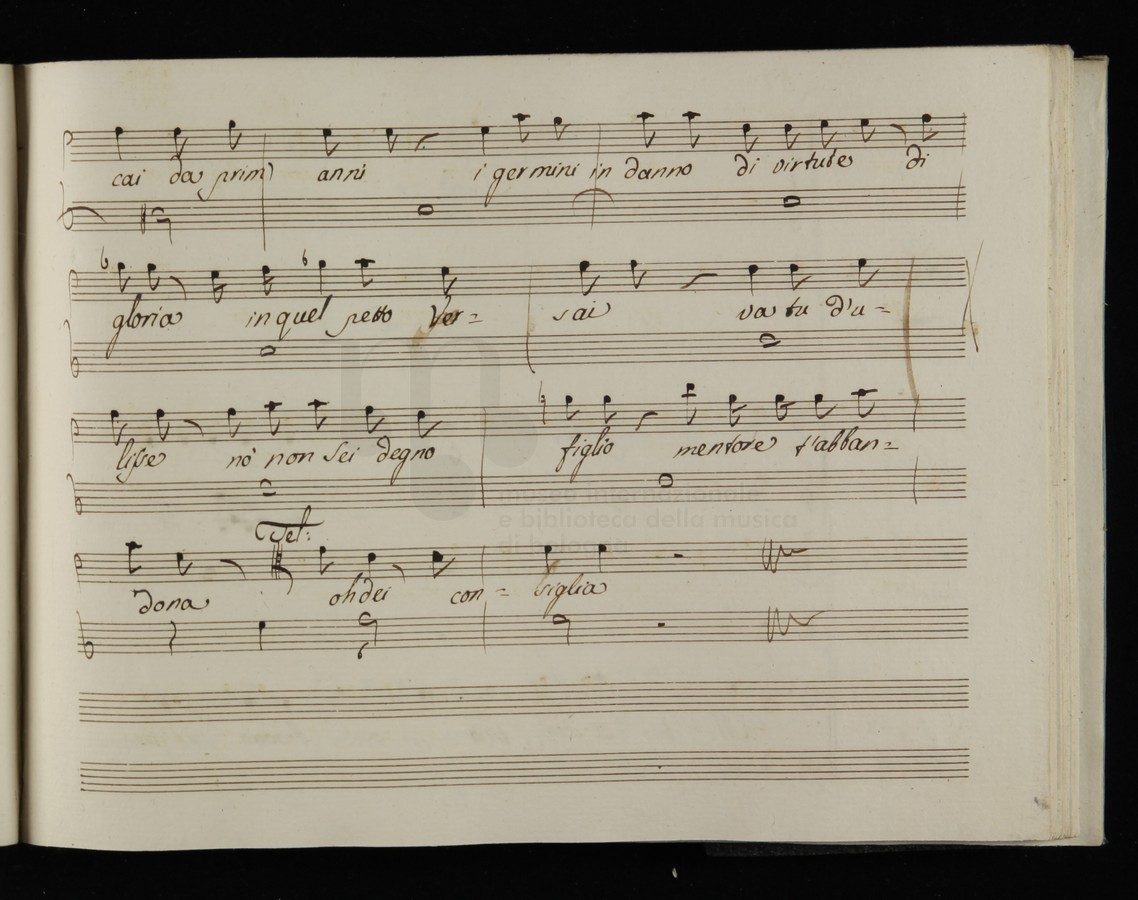 cai da prim anni i germini in danno di virtute di
gloria in quel petto Ver=
sai va tu d'u=
lisse nò non sei degno figlio mentore t'abban=
Tel:
dona oh dei con= siglia
museo internazionale
e biblioteca della musica
di bologna